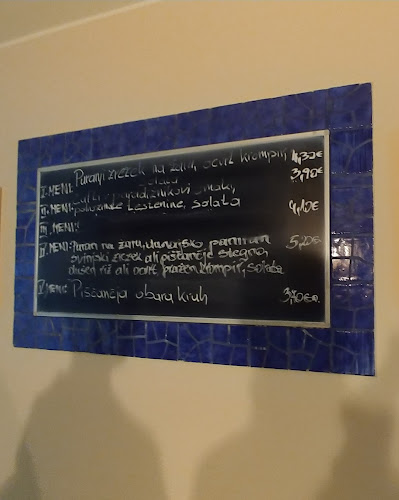 I. MENI: Puranji zrezek na žaru, ocvrt krompir, 4,30€
solata 3,90€
II. MENI: v paradižnikovi omaki,
testenine, solata
III. MENI: 4,10€
IV. MENI: Puran na žaru, dunajski, pariški 5,20€
svinjski zrezek ali piščančje stegno,
dušen riž ali pražen krompir, solata
V. MENI: Piščančja obara, kruh